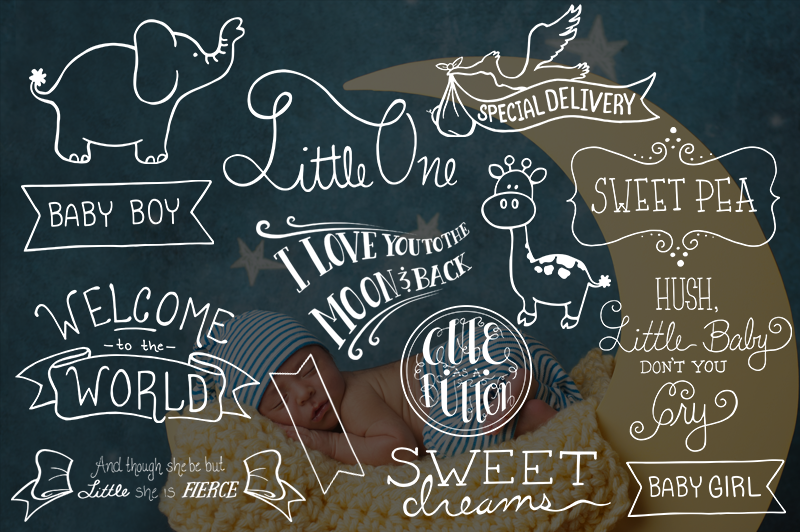 SPECIAL DELIVERY
Little One
BABY BOY
SWEET PEA
I LOVE YOU TO THE
MOON & BACK
WELCOME
to the
WORLD
HUSH,
Little Baby
DON'T YOU
Cry
CUTE
AS A
BUTTON
And though she be but
Little she is FIERCE
SWEET
dreams
BABY GIRL